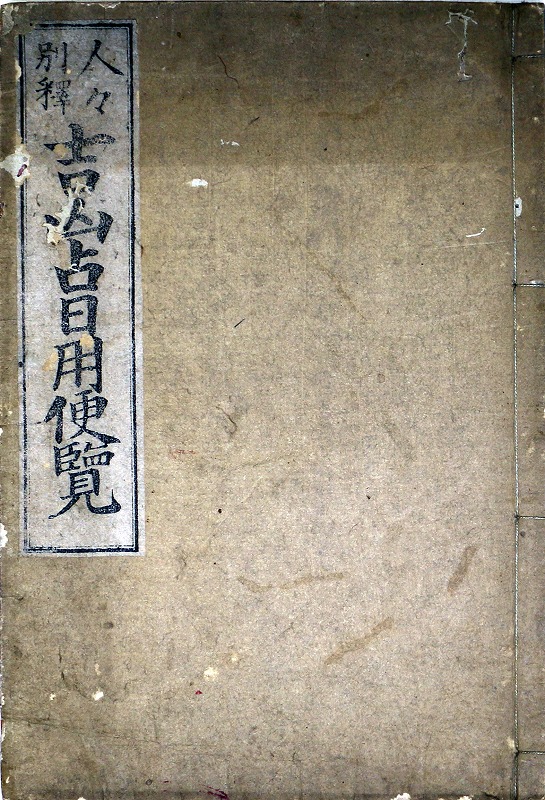 人々
別釋
吉凶占日用便覧